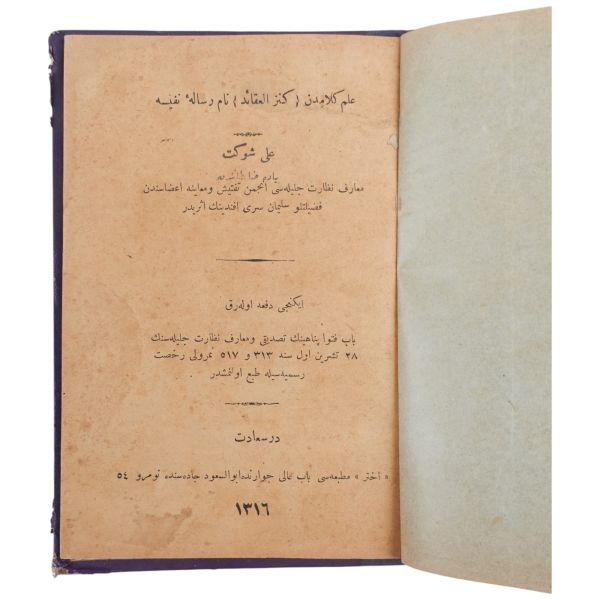 علم كلامدن { كنز العقائد } نام رسالهٔ نفيسه
على شوكت
معارف نظارت جليله‌سى انجمن تفتيش ومعاينه اعضاسندن
فضيلتلو سليمان سرى افندينك اثريدر
ايكنجى دفعه اوله‌رق
باب فتوا پناهينك تصديقى ومعارف نظارت جليله‌سنك
٢٨ تشرين اول سنه ٣١٣ و ٥١٧ نمرولى رخصت
رسميه‌سيله طبع اولنمشدر
در سعادت
« اختر » مطبعه‌سى باب عالى جوارنده ابوالسعود جاده‌سنده نومرو ٥٤
١٣١٦